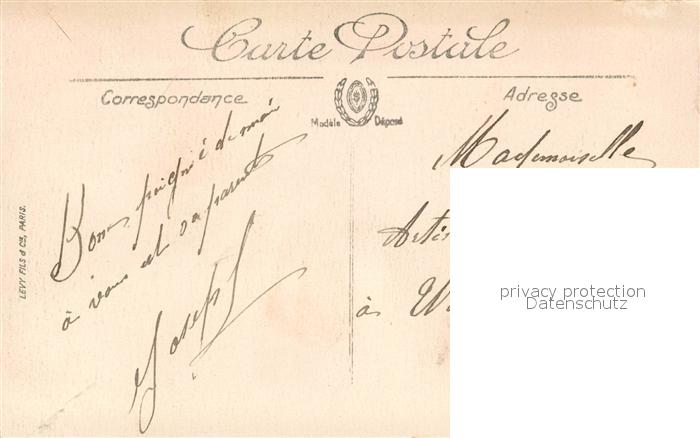 Carte Postale
Correspondance
Adresse
Modèle Déposé
LEVY FILS & Cie, PARIS.
Bonne poignée de main
à vous et sa parents
Joseph
Mademoiselle
Artis
à W
privacy protection
Datenschutz